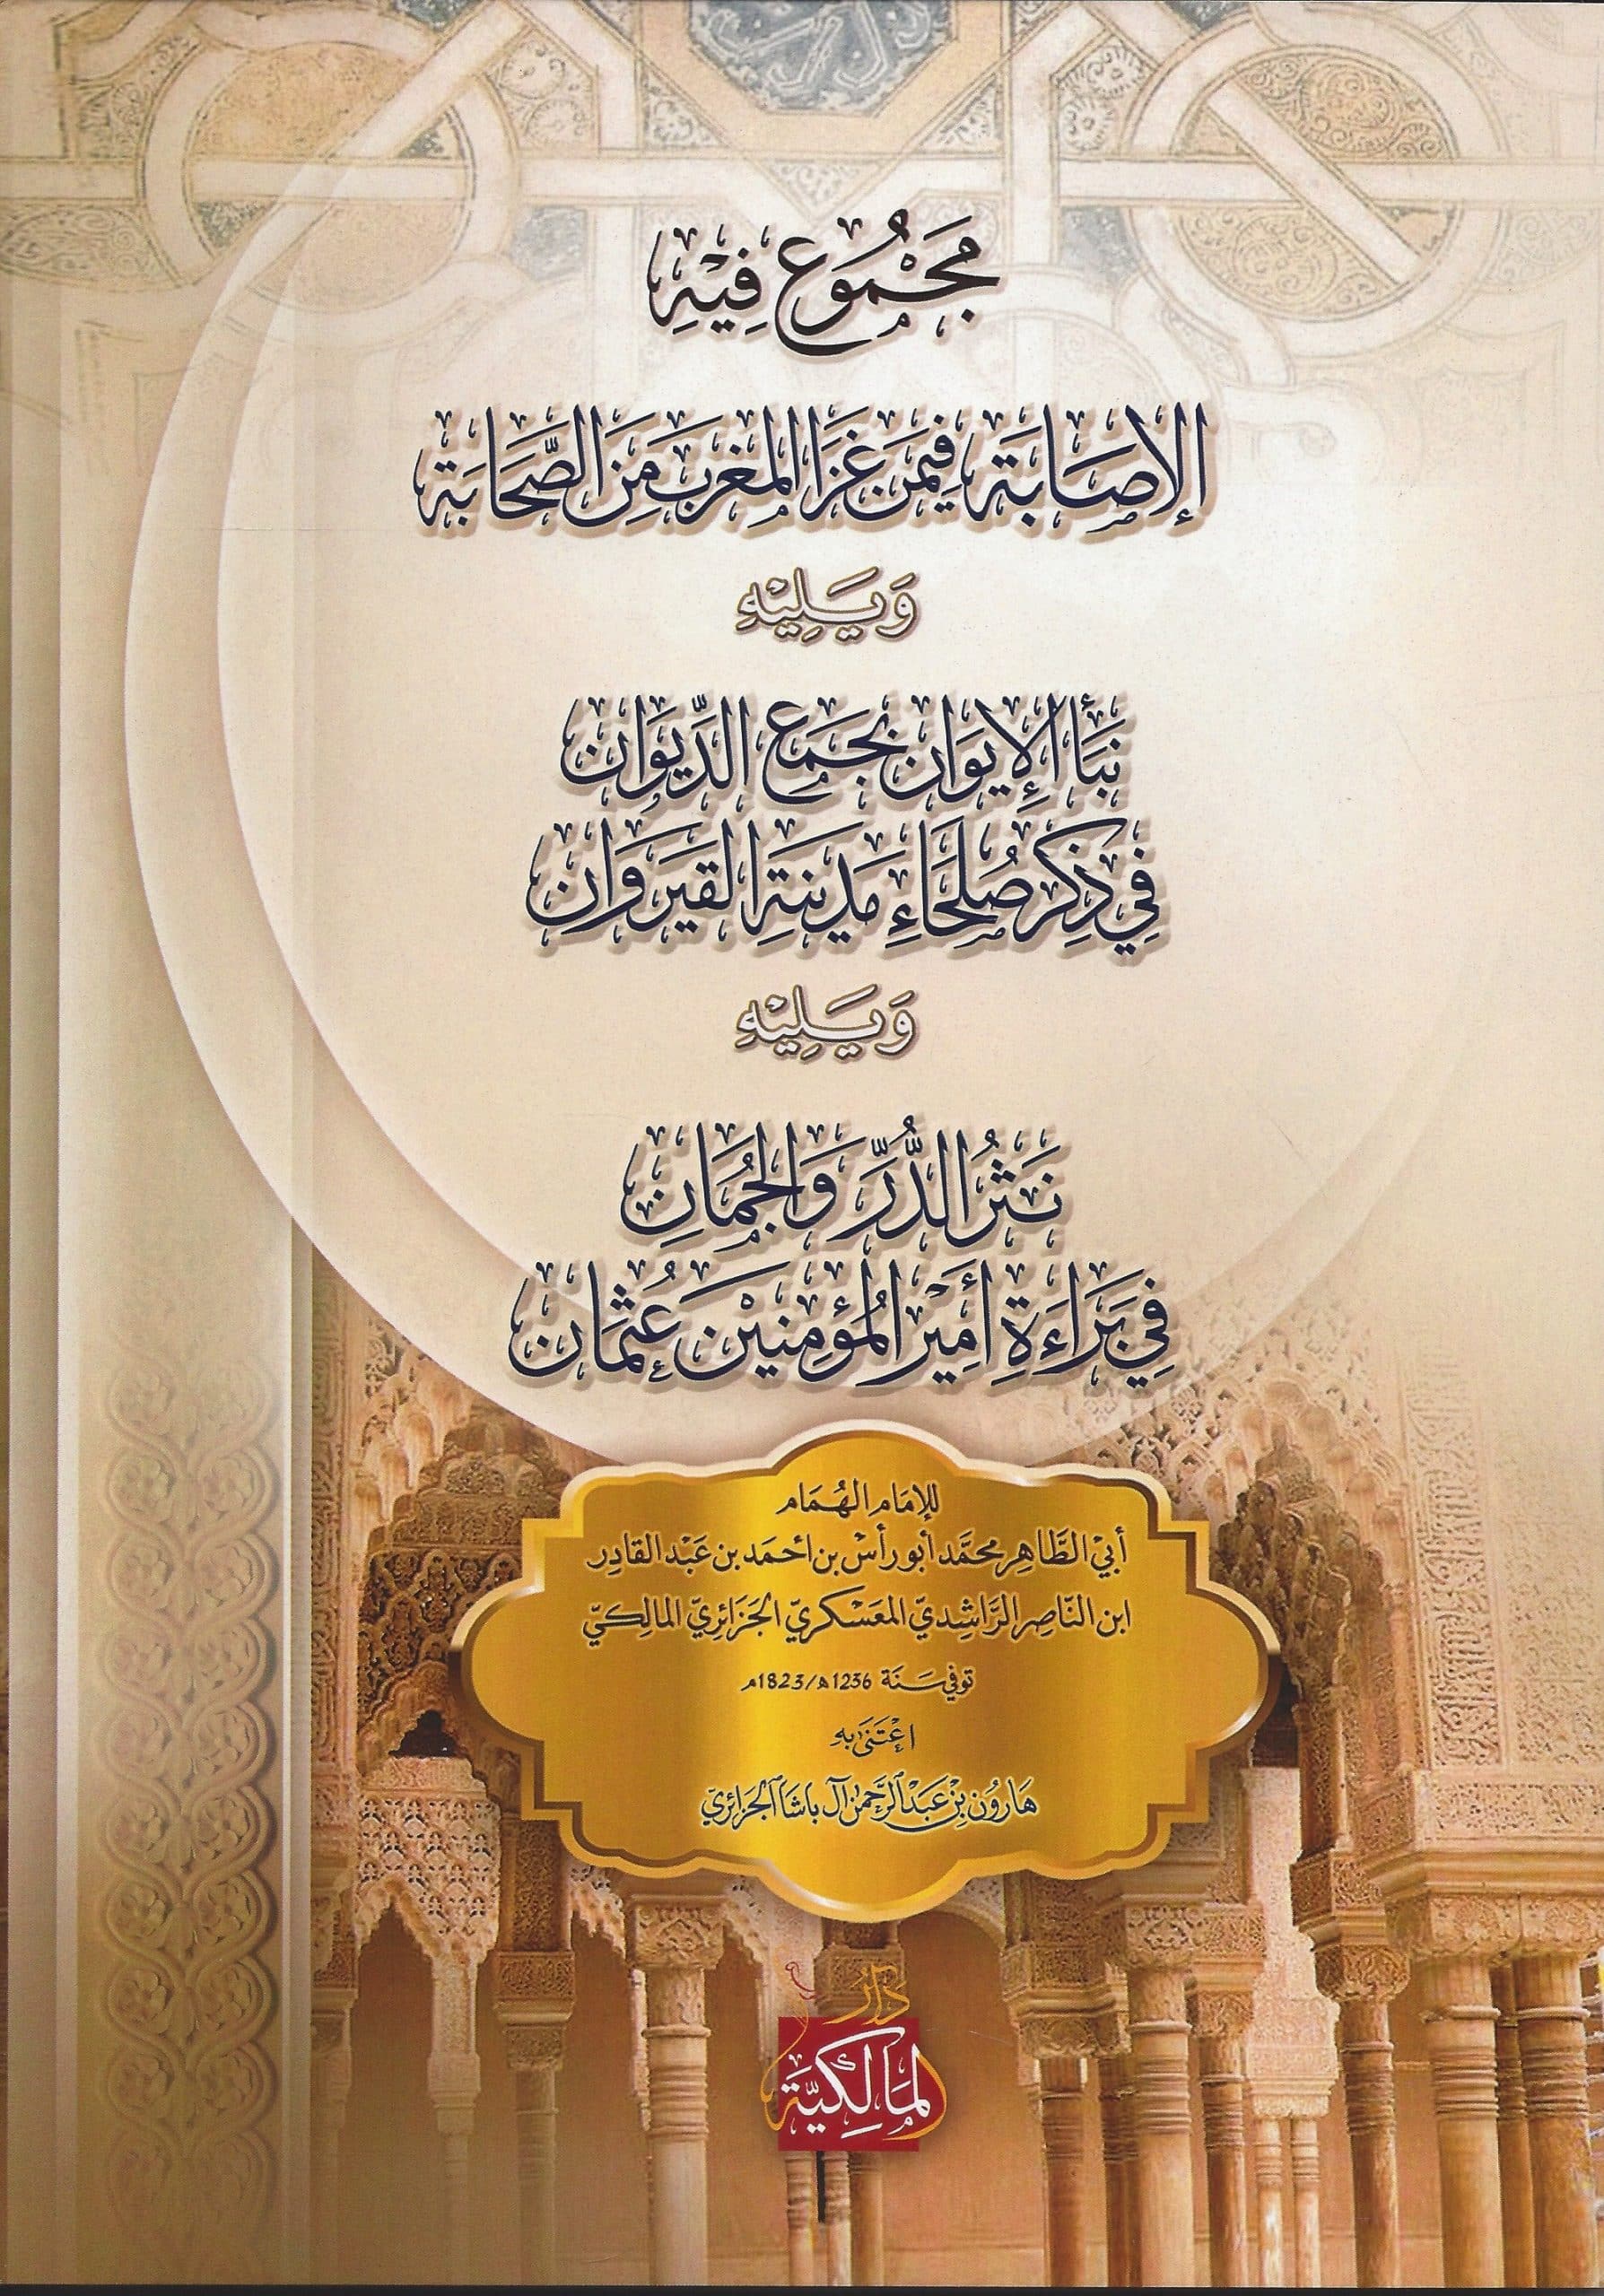 مَجْمُوع فِيْهِ
الإِصَابَة فِيمَن غَزَا المَغرِبَ مِنَ الصَّحَابَة
وَيَلِيْهِ
نَبَأ الإِيوَان بجَمع الدِّيوَان
فِي ذِكر صُلَحَاءِ مَدِينَةِ القَيرَوَان
وَيَلِيْهِ
نَثرُ الدُّرِّ وَالجُمَانِ
فِي بَرَاءَةِ أَمِيْر المُؤمِنيْن عُثمَان
للإمَام الهُمَام
أبيْ الطَّاهِر محمَّد أبو رأسْ بن أحمَد بن عَبْد القادِر
ابن النَّاصِر الرَّاشِديّ المعَسْكريّ الجَزَائِريّ المالِكيّ
توفي سَنَة 1236ه/1823م
اعْتَنىَ به
هَارُون بْن عَبْد الرَّحمٰن آل باشَا الجَزَائِريّ
دَارُ
المَالِكيَّة